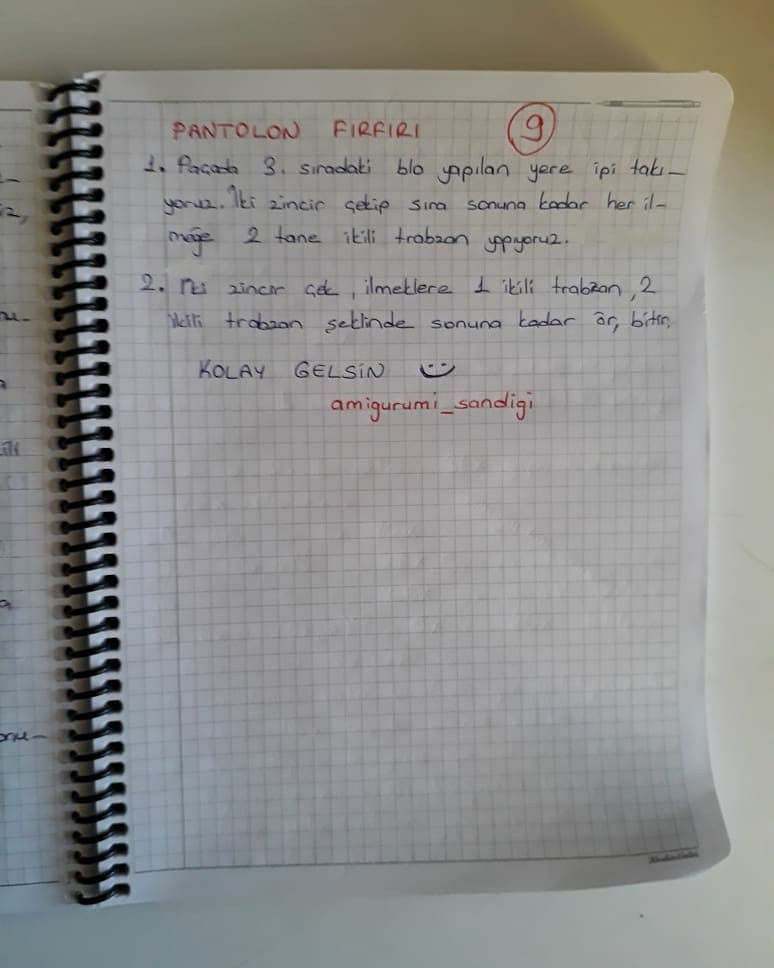 PANTOLON FIRFIRI 9
1. Paçada 3. sıradaki blo yapılan yere ipi takı-
yoruz. İki zincir çekip sıra sonuna kadar her il-
meğe 2 tane ikili trabzan yapıyoruz.
2. İki zincir çek, ilmeklere 1 ikili trabzan, 2
ikili trabzan şeklinde sonuna kadar ör, bitir.
KOLAY GELSİN
amigurumi_sandigi